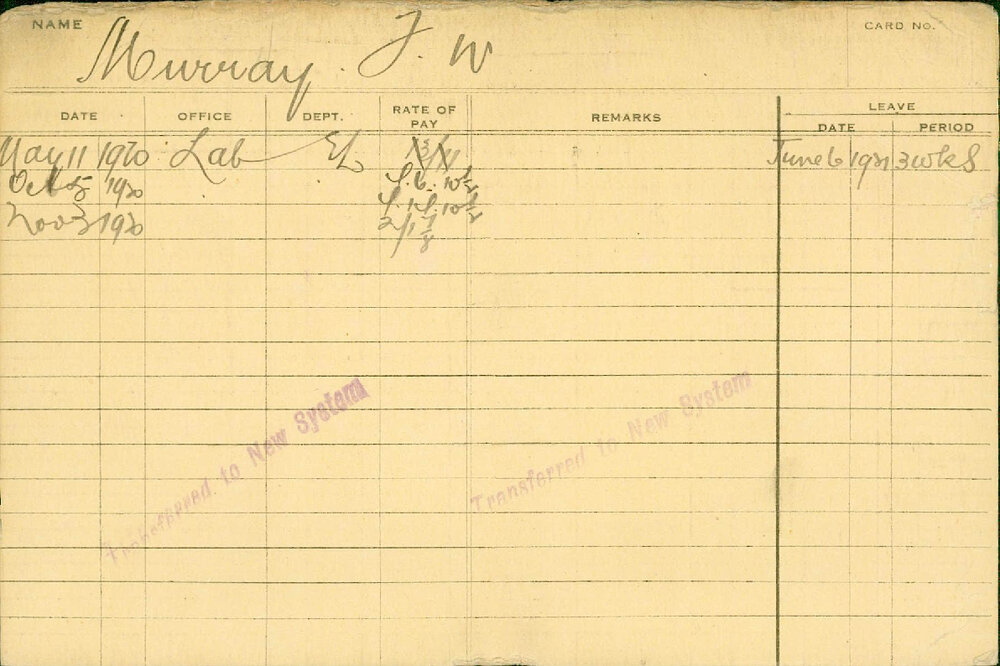 NAME Murray. J. W CARD No.
DATE OFFICE DEPT. RATE OF PAY REMARKS LEAVE
DATE PERIOD
May 11 1920 Lab EL June 6 1921 3 wks
Oct 5 1920
Nov 3 1920 2/1 7/8
Transferred to New System
Transferred to New System